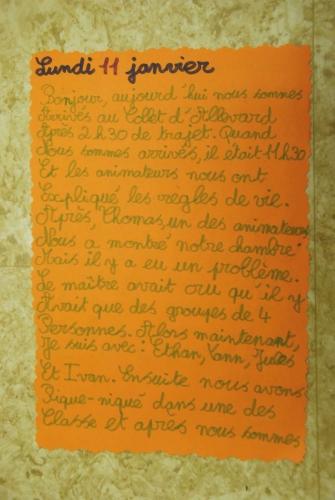 Lundi 11 janvier
Bonjour, aujourd'hui nous sommes
Arrivés au Collet d'Allevard
Après 2 h 30 de trajet. Quand
Nous sommes arrivés, il était 11 h 30
Et les animateurs nous ont
Expliqué les règles de vie.
Après, Thomas, un des animateurs
Nous a montré notre chambre
Mais il y a eu un problème.
Le maître avait cru qu'il y
Avait que des groupes de 4
Personnes. Alors maintenant,
Je suis avec : Ethan, Yann, Jules
Et Ivan. Ensuite nous avons
Pique-niqué dans une des
Classe et après nous sommes